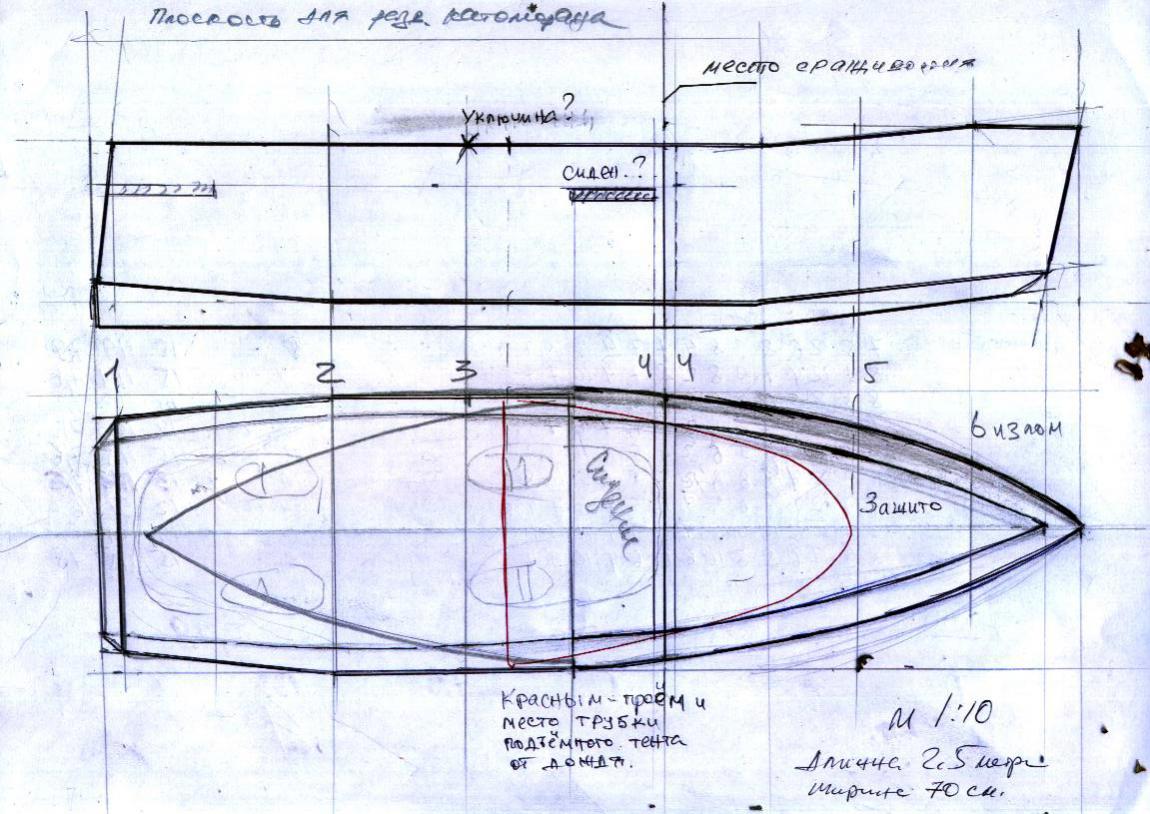 Плоскость для
место сращивания
уключина?
сиден.?
1 2 3 4 4 5
в излом
Сиденье
Зашито
Красным-проём и
место трубки
подъёмного тента
от дождя.
М 1:10
Длинна 2.5 метра
Ширина 70 см.